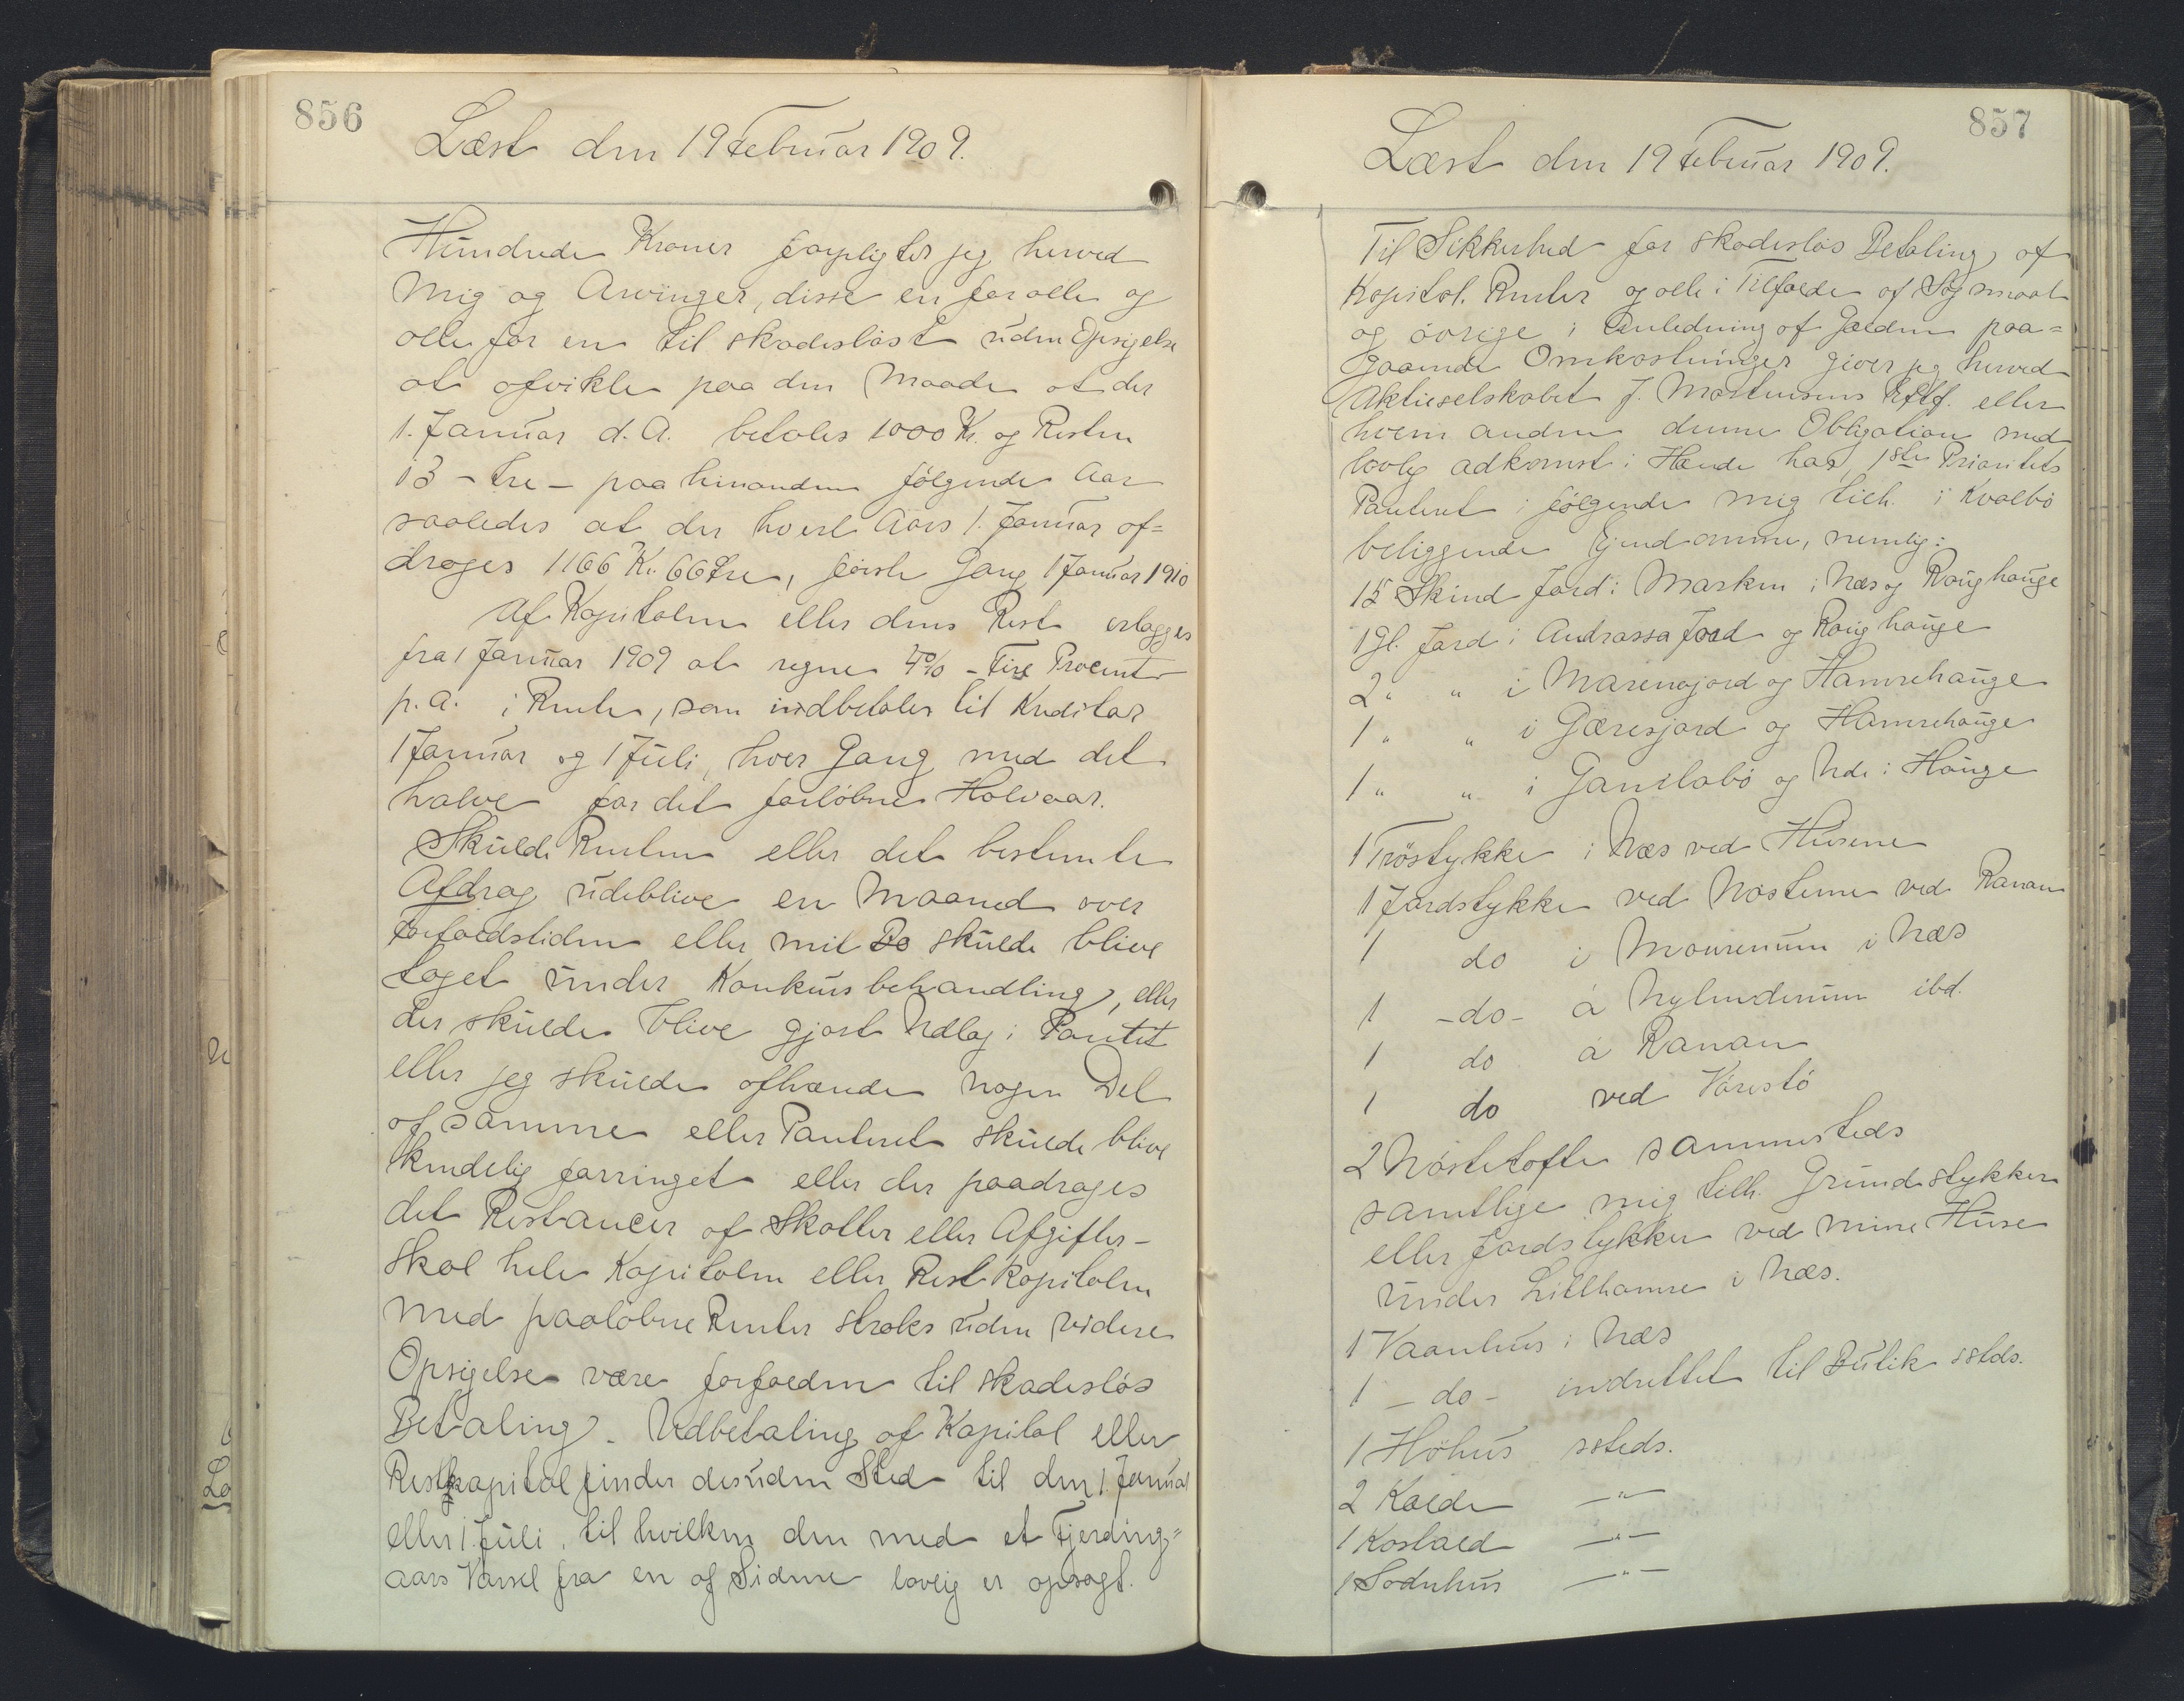 856
Læst den 19 Februar 1909.
Hundrede Kroner forpligter jeg herved
mig og Arvinger, disse en for alle og
alle for en til skadesløst uden Opsigelse
at afvikle paa den Maade at der
1. Januar d. A. betales 1000 Kr. og Resten
i 3 - tre - paa hinanden følgende Aar
saaledes at der hvert Aars 1. Januar af=
drages 1166 Kr. 66 Øre, første Gang 1 Januar 1910
Af Kapitalen eller dens Rest erlægges
fra 1 Januar 1909 at regne 4% - Fire Procent
p. a. i Rente, som indbetales til Kreditor
1 Januar og 1 Juli, hver Gang med det
halve for det forløbne Halvaar.
Skulde Renten eller det bestemte
Afdrag udeblive en Maaned over
Forfaldstiden eller mit Bo skulde blive
taget under Konkursbehandling, eller
der skulde blive gjort Udlæg i Pantet
eller jeg skulde afhænde nogen Del
af samme eller Panteret skulde blive
kendelig forringet eller der paadrages
det Restancer af Skatter eller Afgifter -
skal hele Kapitalen eller Restkapitalen
med paaløbne Renter straks uden videre
Opsigelse være forfalden til skadesløs
Betaling. Udbetaling af Kapital eller
Restkapital finder desuden Sted til den 1. Januar
eller 1. Juli, til hvilken den med et Fjerding=
aars Varsel fra en af Siderne lovlig er opsagt.
857
Læst den 19 Februar 1909.
Til Sikkerhed for skadesløs Betaling af
Kapital. Renter og alle i Tilfælde af Søgsmaal
og øvrige i Anledning af Gælden paa=
gaaende Omkostninger giver jeg herved
Aktieselskabet J. Mortensens Eftf. eller
hvem anden denne Obligation med
lovlig adkomst i Hænde har, 1ste Prioritets
Panteret i følgende mig tilh. i Kvalbø
beliggende Ejendomme, nemlig:
15 Skind Jord i Marken i Næs og Roughauge
1 Gl. Jord i Andrassa Jord og Roughauge
2 " " i Marenajord og Hamrehauge
1 " " i Gæresjord og Hamrehauge
1 " " i Gamlabø og Ude i Hauge
1 Trøstykke i Næs ved Husene
1 Jordstykke ved Nøsterne ved Ranan
1 do i Mourenum i Næs
1 - do - á Nylenderum ibd.
1 do á Ranan
1 do ved Vørestø
2 Nøstetofte sammesteds
samtlige mig tilh. Grundstykker
eller Jordstykker ved mine Huse
under Lillhamre i Næs.
1 Vaanhus i Næs
1 - do - indrettet til Butik ssteds.
1 Høhus ssteds.
2 Kælde - " -
1 Kostald - " -
1 Sodnhus - " -